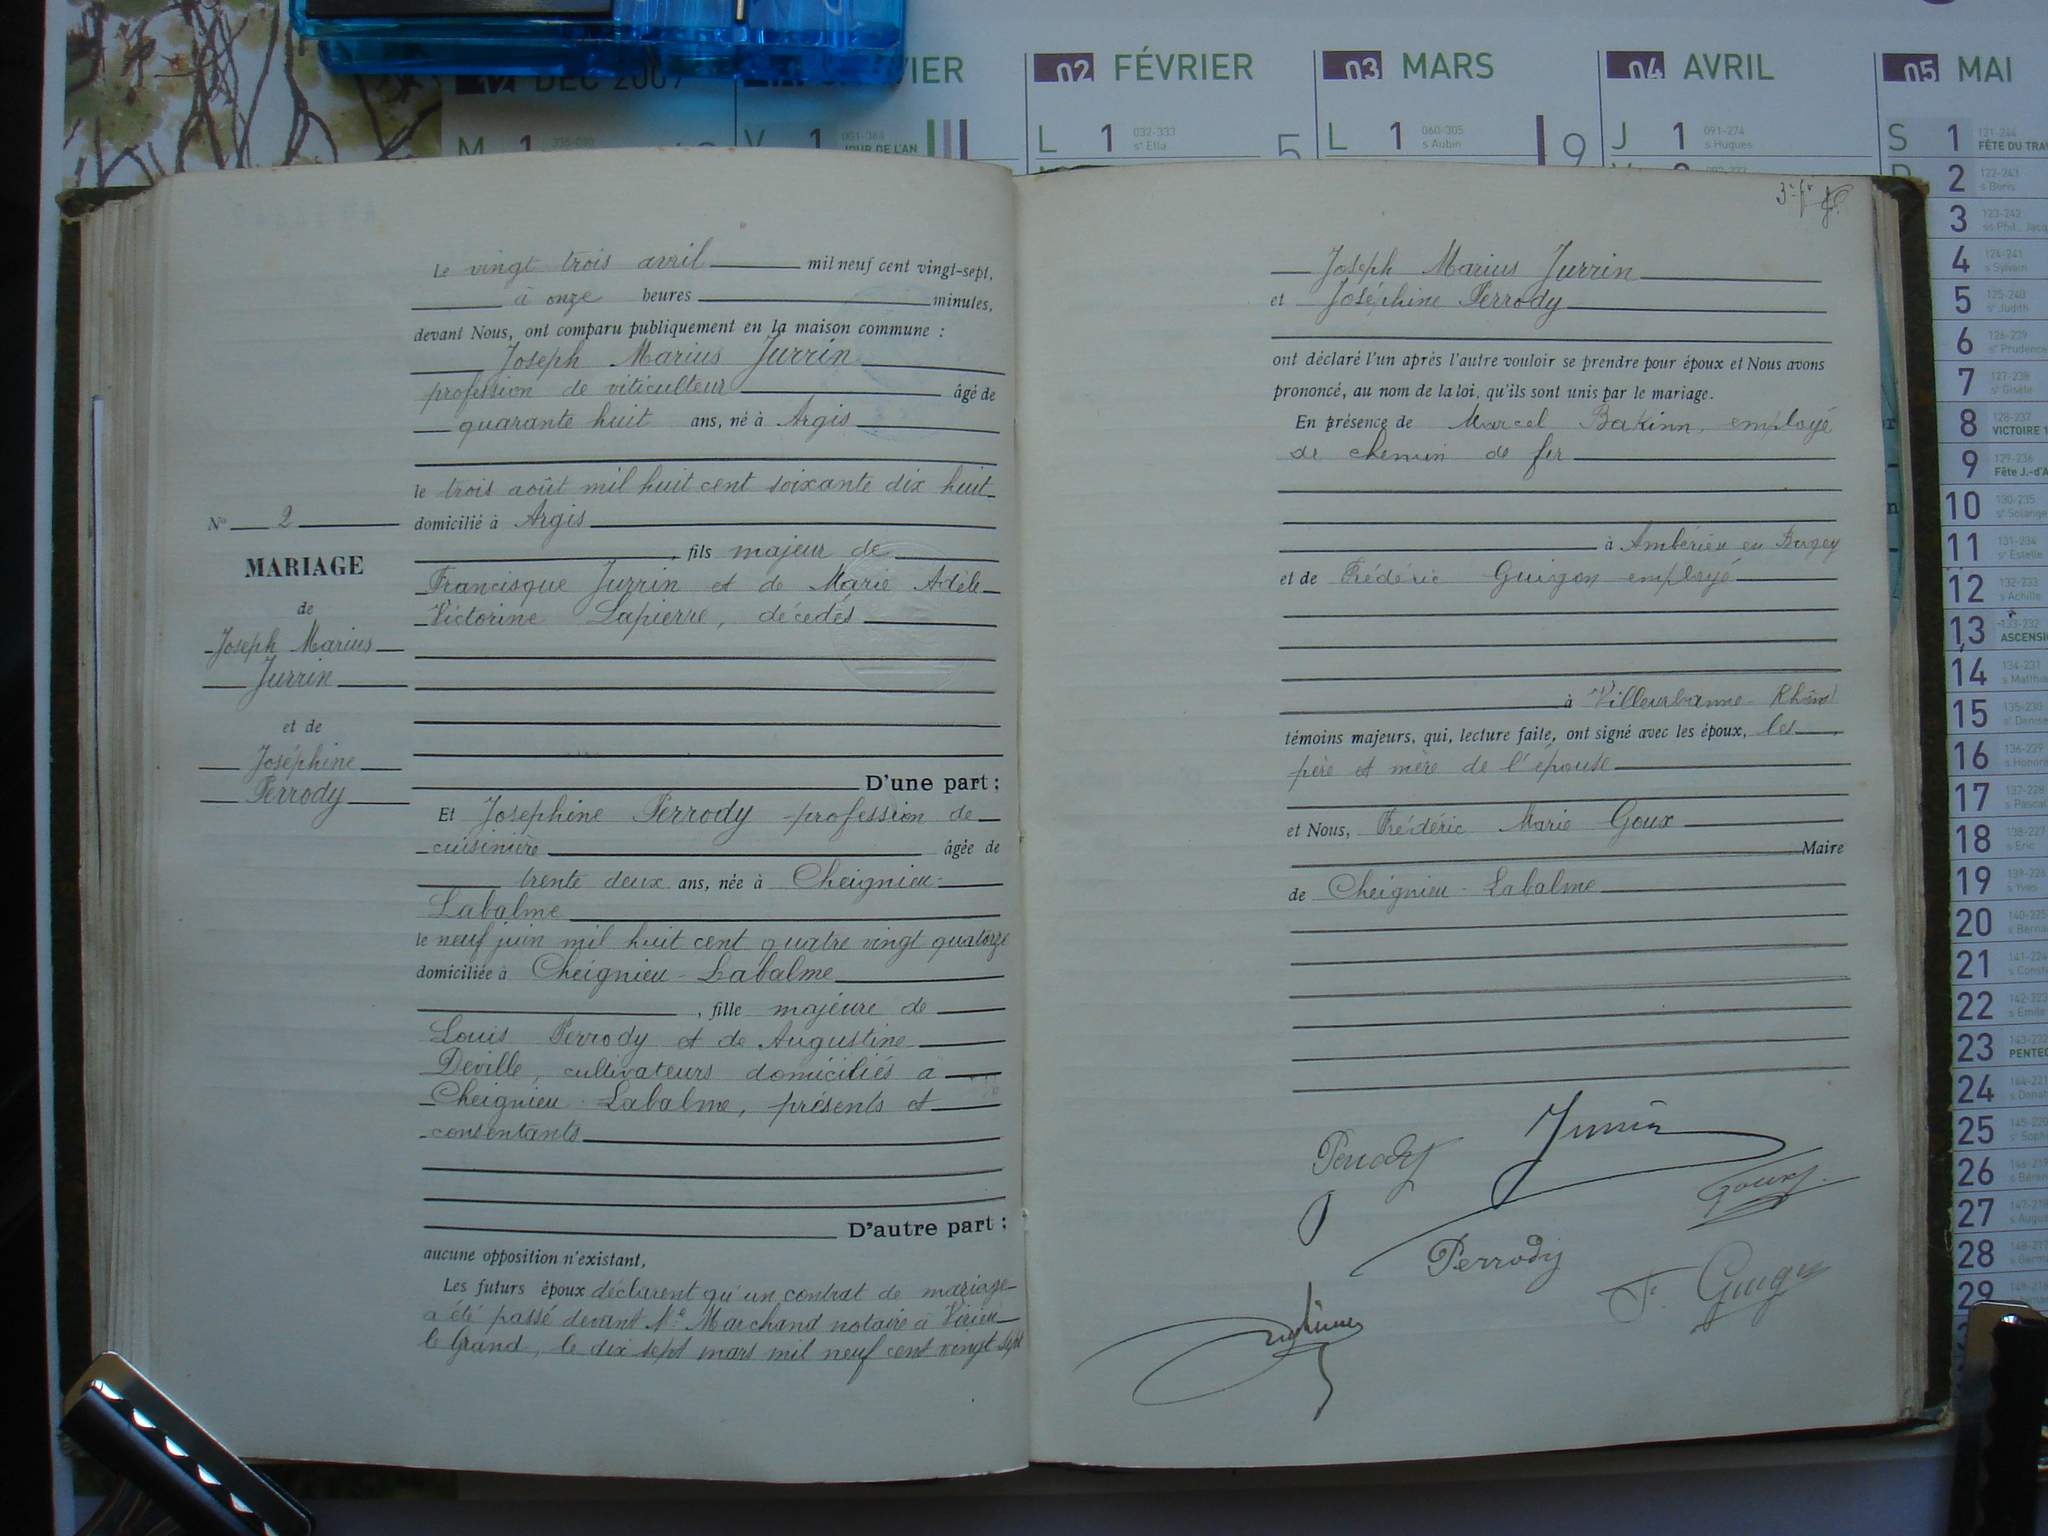 DEC 2009
VIER
02 FÉVRIER
03 MARS
04 AVRIL
05 MAI
M 1
V 1 001-364 JOUR DE L'AN
L 1 032-333 se Ella
5
L 1 060-305 s Aubin
9
J 1 091-274 s Hugues
S 1 121-244 FÊTE DU TRAV
2 122-243 s Boris
3 123-242 ss Phil., Jacq
4 124-241 s Sylvain
5 125-240 se Judith
6 126-239 se Prudence
7 127-238 se Gisèle
8 128-237 VICTOIRE 1
9 129-236 Fête J.-d'A
10 130-235 se Solange
11 131-234 se Estelle
12 132-233 s Achille
13 133-232 ASCENSI
14 134-231 s Matthia
15 135-230 se Denise
16 136-229 s Honoré
17 137-228 s Pascal
18 138-227 s Eric
19 139-226 s Yves
20 140-225 s Bernar
21 141-224 s Const
22 142-223 s Emile
23 143-222 PENTEC
24 144-221 s Donat
25 145-220 se Soph
26 146-219 s Béren
27 147-218 s Augus
28 148-217 s Germ
29 149-216
Le vingt trois avril mil neuf cent vingt-sept,
à onze heures minutes,
devant Nous, ont comparu publiquement en la maison commune :
Joseph Marius Jurrin
profession de viticulteur âgé de
quarante huit ans, né à Argis
le trois août mil huit cent soixante dix huit
domicilié à Argis
, fils majeur de
Francisque Jurrin et de Marie Adèle
Victorine Lapierre, décédés
D'une part ;
Et Josephine Perrody profession de
cuisinière âgée de
trente deux ans, née à Cheignieu-
Labalme
le neuf juin mil huit cent quatre vingt quatorze
domiciliée à Cheignieu-Labalme
, fille majeure de
Louis Perrody et de Augustine
Deville, cultivateurs domiciliés à
Cheignieu-Labalme, présents et
consentants
D'autre part ;
aucune opposition n'existant,
Les futurs époux déclarent qu'un contrat de mariage
a été passé devant Me Marchand notaire à Virieu
le Grand, le dix sept mars mil neuf cent vingt sept
No 2
MARIAGE
de
Joseph Marius
Jurrin
et de
Joséphine
Perrody
Joseph Marius Jurrin
et Joséphine Perrody
ont déclaré l'un après l'autre vouloir se prendre pour époux et Nous avons
prononcé, au nom de la loi, qu'ils sont unis par le mariage.
En présence de Marcel Bakinn, employé
de chemin de fer
à Ambérieu en Bugey
et de Frédéric Guigon employé
à Villeurbanne Rhône
témoins majeurs, qui, lecture faite, ont signé avec les époux, les
père et mère de l'épouse
et Nous, Frédéric Marie Goux
Maire
de Cheignieu-Labalme
Perrody
Jurrin
Goux
Perrody
F. Guigon